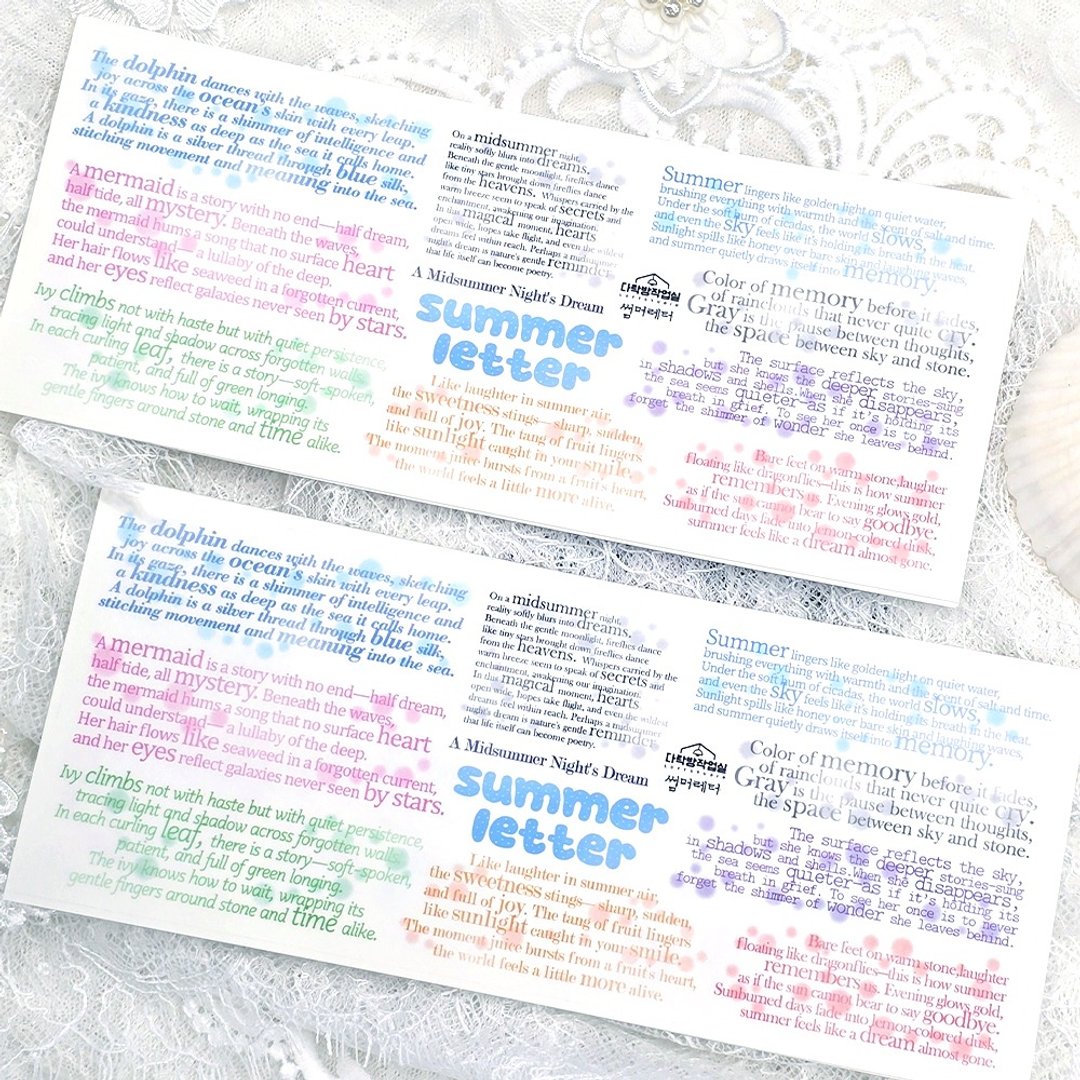 The dolphin dances with the waves, sketching
joy across the ocean's skin with every leap.
In its gaze, there is a shimmer of intelligence and
a kindness as deep as the sea it calls home.
A dolphin is a silver thread through blue silk,
stitching movement and meaning into the sea.
A mermaid is a story with no end—half dream,
half tide, all mystery. Beneath the waves,
the mermaid hums a song that no surface heart
could understand—a lullaby of the deep.
Her hair flows like seaweed in a forgotten current,
and her eyes reflect galaxies never seen by stars.
Ivy climbs not with haste but with quiet persistence,
tracing light and shadow across forgotten walls.
In each curling leaf, there is a story—soft-spoken,
patient, and full of green longing.
The ivy knows how to wait, wrapping its
gentle fingers around stone and time alike.
On a midsummer night,
reality softly blurs into dreams.
Beneath the gentle moonlight, fireflies dance
like tiny stars brought down fireflies dance
from the heavens. Whispers carried by the
warm breeze seem to speak of secrets and
enchantment, awakening our imagination.
In that magical moment, hearts
open wide, hopes take flight, and even the wildest
dreams feel within reach. Perhaps a midsummer
night's dream is nature's gentle reminder
that life itself can become poetry.
A Midsummer Night's Dream
summer
letter
다락방작업실
썸머레터
Like laughter in summer air,
the sweetness stings—sharp, sudden,
and full of joy. The tang of fruit lingers
like sunlight caught in your smile.
The moment juice bursts from a fruit's heart,
the world feels a little more alive.
Summer lingers like golden light on quiet water,
brushing everything with warmth and the scent of salt and time.
Under the soft hum of cicadas, the world slows,
and even the sky feels like it's holding its breath in the heat.
Sunlight spills like honey over bare skin and laughing waves,
and summer quietly draws itself into memory.
Color of memory before it fades,
of rainclouds that never quite cry.
Gray is the pause between thoughts,
the space between sky and stone.
The surface reflects the sky,
but she knows the deeper stories-sung
in shadows and shells.When she disappears,
the sea seems quieter-as if it's holding its
breath in grief. To see her once is to never
forget the shimmer of wonder she leaves behind.
Bare feet on warm stone,laughter
floating like dragonflies—this is how summer
remembers us. Evening glows gold,
as if the sun cannot bear to say goodbye.
Sunburned days fade into lemon-colored dusk,
summer feels like a dream almost gone.
The dolphin dances with the waves, sketching
joy across the ocean's skin with every leap.
In its gaze, there is a shimmer of intelligence and
a kindness as deep as the sea it calls home.
A dolphin is a silver thread through blue silk,
stitching movement and meaning into the sea.
A mermaid is a story with no end—half dream,
half tide, all mystery. Beneath the waves,
the mermaid hums a song that no surface heart
could understand—a lullaby of the deep.
Her hair flows like seaweed in a forgotten current,
and her eyes reflect galaxies never seen by stars.
Ivy climbs not with haste but with quiet persistence,
tracing light and shadow across forgotten walls.
In each curling leaf, there is a story—soft-spoken,
patient, and full of green longing.
The ivy knows how to wait, wrapping its
gentle fingers around stone and time alike.
On a midsummer night,
reality softly blurs into dreams.
Beneath the gentle moonlight, fireflies dance
like tiny stars brought down fireflies dance
from the heavens. Whispers carried by the
warm breeze seem to speak of secrets and
enchantment, awakening our imagination.
In that magical moment, hearts
open wide, hopes take flight, and even the wildest
dreams feel within reach. Perhaps a midsummer
night's dream is nature's gentle reminder
that life itself can become poetry.
A Midsummer Night's Dream
summer
letter
다락방작업실
썸머레터
Like laughter in summer air,
the sweetness stings—sharp, sudden,
and full of joy. The tang of fruit lingers
like sunlight caught in your smile.
The moment juice bursts from a fruit's heart,
the world feels a little more alive.
Summer lingers like golden light on quiet water,
brushing everything with warmth and the scent of salt and time.
Under the soft hum of cicadas, the world slows,
and even the sky feels like it's holding its breath in the heat.
Sunlight spills like honey over bare skin and laughing waves,
and summer quietly draws itself into memory.
Color of memory before it fades,
of rainclouds that never quite cry.
Gray is the pause between thoughts,
the space between sky and stone.
The surface reflects the sky,
but she knows the deeper stories-sung
in shadows and shells.When she disappears,
the sea seems quieter-as if it's holding its
breath in grief. To see her once is to never
forget the shimmer of wonder she leaves behind.
Bare feet on warm stone,laughter
floating like dragonflies—this is how summer
remembers us. Evening glows gold,
as if the sun cannot bear to say goodbye.
Sunburned days fade into lemon-colored dusk,
summer feels like a dream almost gone.